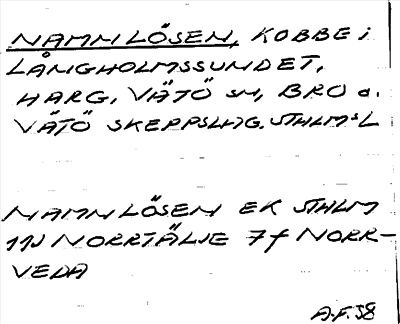 NAMNLÖSEN, KOBBE i
LÅNGHOLMSSUNDET,
HARG, VÄTÖ SN, BRO o.
VÄTÖ SKEPPSLAG. STHLM:S L
NAMNLÖSEN EK STHLM
11J NORRTÄLJE 7 f NORR-
VEDA
A.F. 58